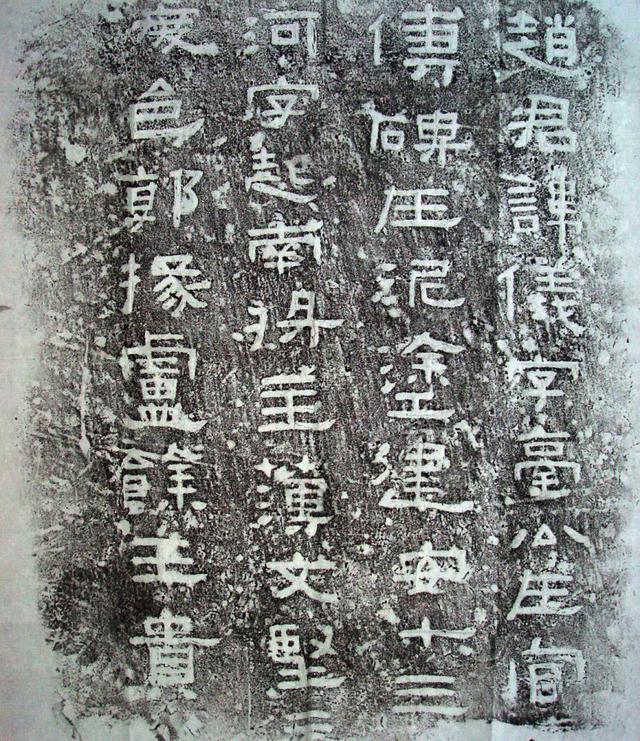 趙君諱儀字臺公在官
傳碑在泥塗建安十三
河字起南將主薄文堅主
邑郭掾盧餘王貴